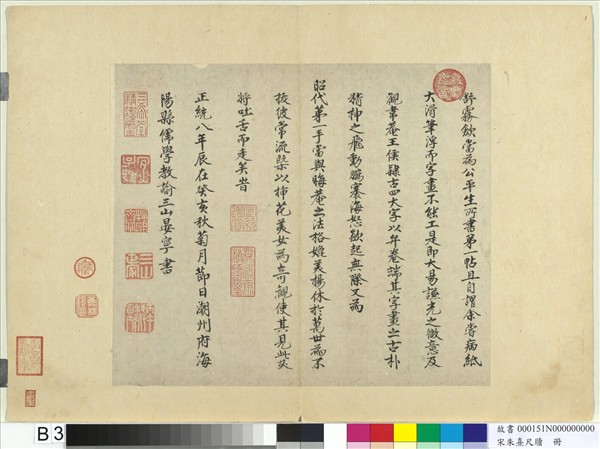 舒霧歛當為公平生所書第一帖且自謂余嘗病紙
大滑筆浮而字畫不能工是即大易謙光之微意及
觀聿菴王侯隸古四大字以弁卷端其字畫之古朴
精神之飛動鵬騫海怒歘起無際又為
昭代第一手當與晦菴之法格媲美揚休於萬世為不
拔彼常流槩以挿花美女為奇觀使其見此必
將吐舌而走矣旹
正統八年辰在癸亥秋菊月節日潮州府海
陽縣儒學教諭三山晏寧書
三山
B 3
故書 000151N000000000
宋朱熹尺牘 冊